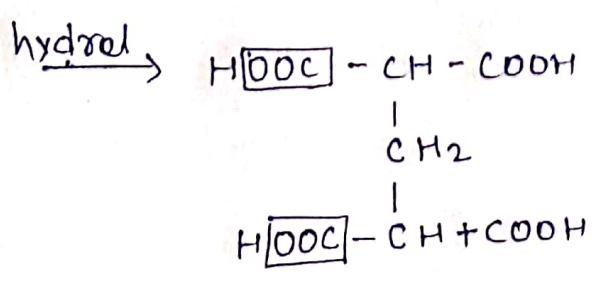 hydrol → HOOC - CH - COOH
|
CH2
|
HOOC - CH + COOH